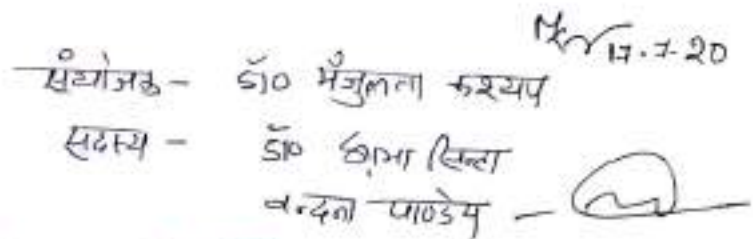 17.7.20
संयोजक - डॉ० मँजुलता कश्यप
सदस्य - डॉ० छाया सिन्हा
वन्दना पाण्डेय -